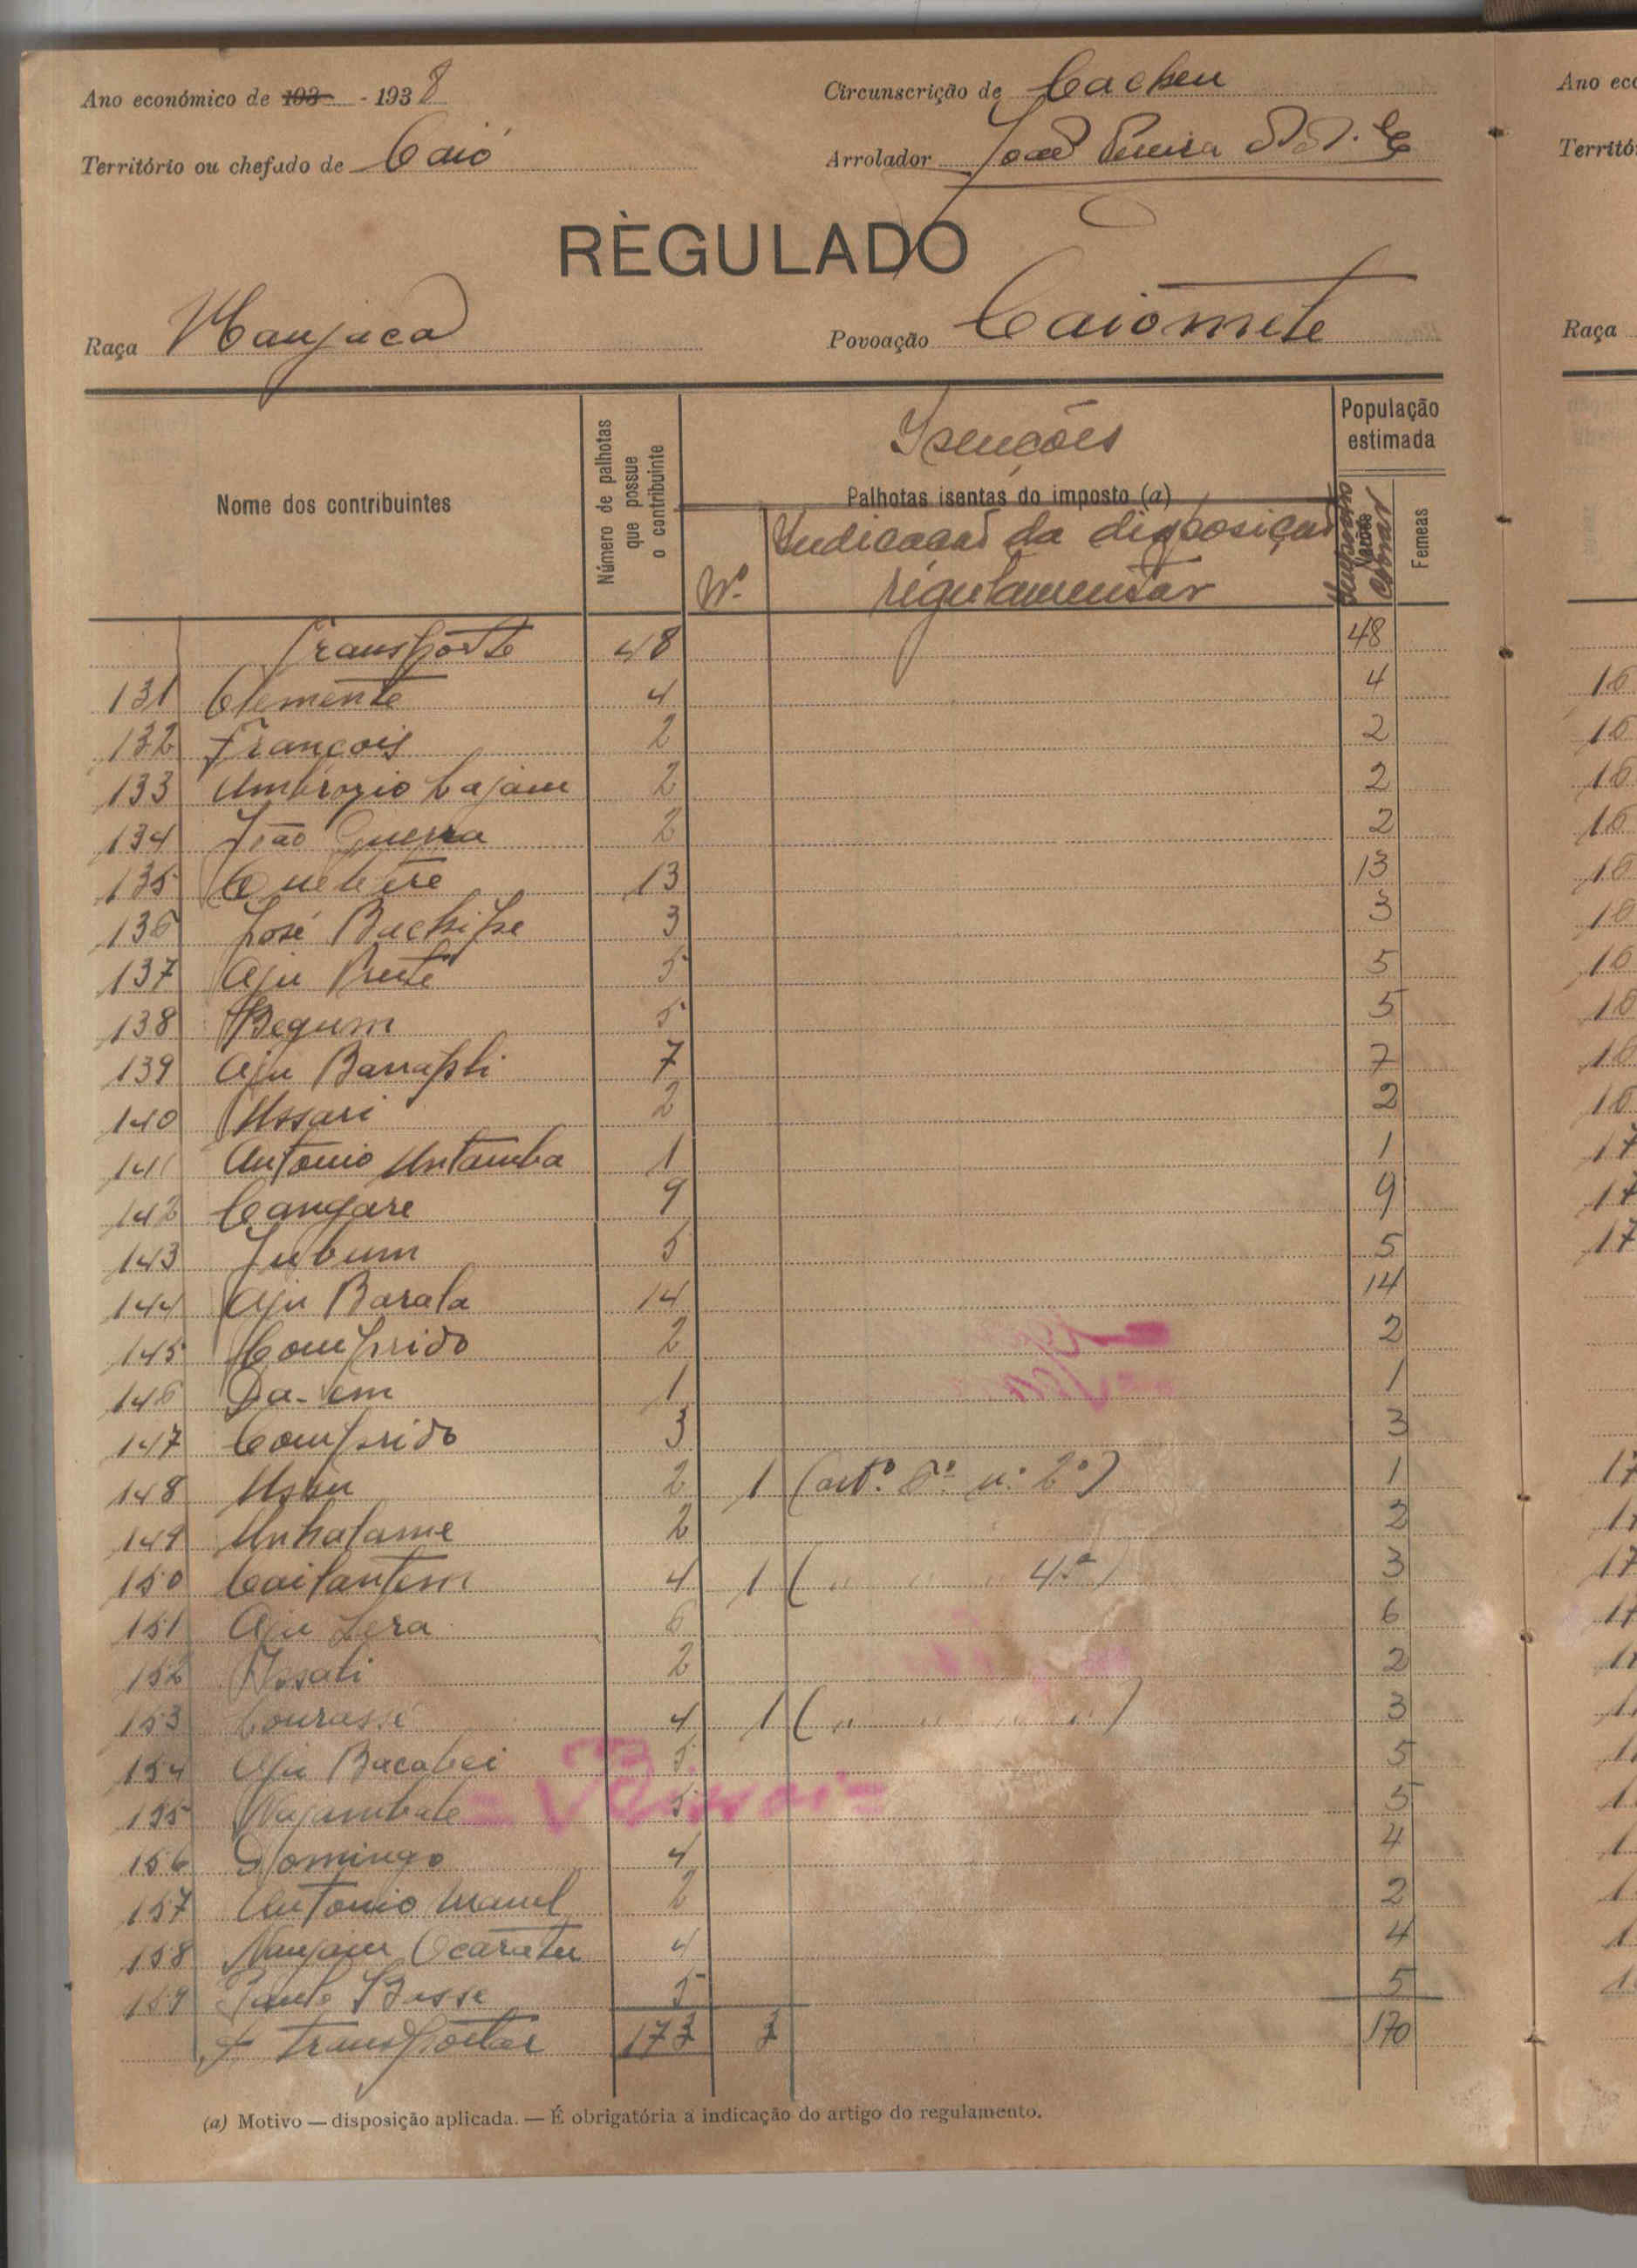 Ano económico de 193 - 1938
Circunscrição de Cacheu
Território ou chefado de Caió
Arrolador João Pereira
RÈGULADO
Raça Manjaca
Povoação Caiomete
Nome dos contribuintes
Número de palhotas que possue o contribuinte
Isenções
Palhotas isentas do imposto (a)
Nº
Indicação da disposição
regulamentar
População estimada
Femeas
Transporte 48 48
131 Clemente 4 4
132 François 2 2
133 Ambrozio Cajam 2 2
134 João Guerra 2 2
135 Quebetre 13 13
136 José Bachipe 3 3
137 Aju Prute 5 5
138 Begum 5 5
139 Aju Barrapli 7 7
140 Ussari 2 2
141 Antonio Untamba 1 1
142 Cangare 9 9
143 Jubum 5 5
144 Aju Barala 14 14
145 Comprido 2 2
146 Da-em 1 1
147 Comprido 3 3
148 2 1 (artº. 6º nº 2º) 1
149 Unhalame 2 2
150 Caitantem 4 1 ( " " " 4º ) 3
151 Aju Lera 6 6
152 Ussali 2 2
153 Courassi 4 1 ( " " " " ) 3
154 Aju Bacabei 5 5
155 Najambale 5 5
= Binhai =
156 Domingo 4 4
157 Antonio Manel 2 2
158 Nanjam Ocaratu 4 4
159 Paulo Basse 5 5
A transportar 173 3 170
(a) Motivo — disposição aplicada. — É obrigatória a indicação do artigo do regulamento.
Ano eco
Territó
Raça